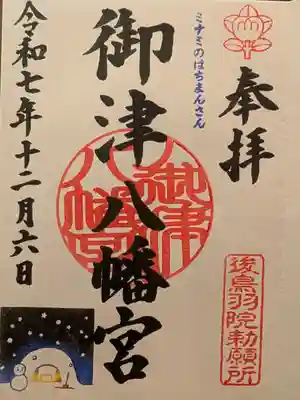 奉拝
後鳥羽院勅願所
ミナミのはちまんさん
御津八幡宮
御津
八幡宮
令和七年十二月六日